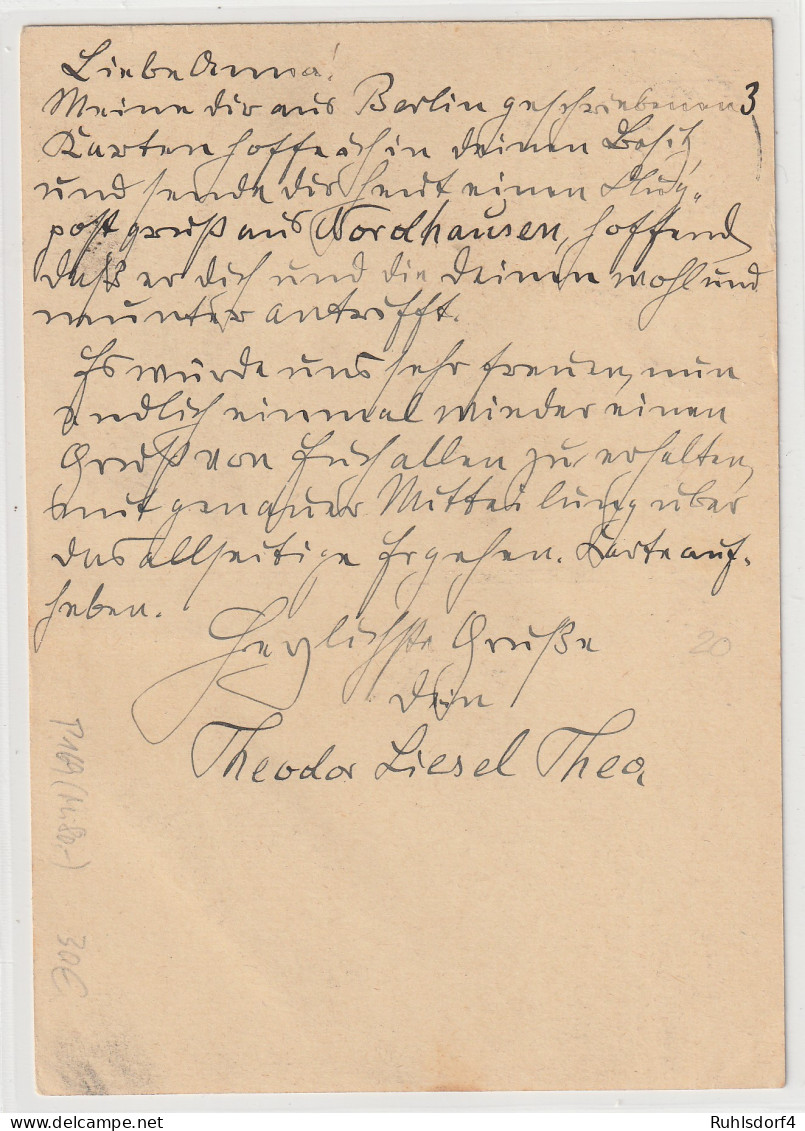 Liebe Anna!
Meine dir aus Berlin geschriebenen 3
Karten hoffe ich in deinen Besitz,
und sende dir heut einen Flug-
postgruß aus Nordhausen, hoffend
daß er dich und die deinen wohl und
munter antrifft.
Es würde uns sehr freuen, nun
endlich einmal wieder einen
Gruß von Euch allen zu erhalten,
mit genauer Mitteilung über
das allseitige Ergehen. Karte auf-
heben.
Herzlichste Grüße
20
dein
Theodor Liesel Thea
30€
Ruhlsdorf4